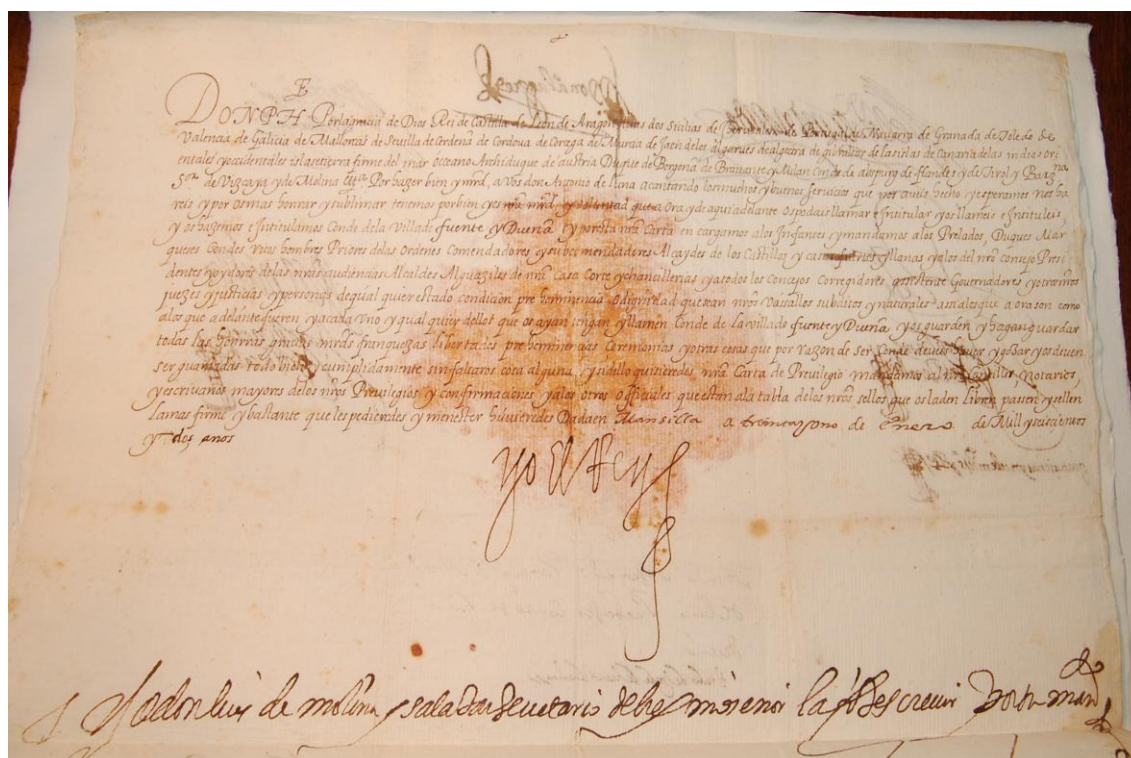 DON PHE Por la gracia de Dios Rei de Castilla de Leon de Aragon de las dos Sicilias de Jerusalem de Portugal de Navarra de Granada de Toledo de
Valencia de Galicia de Mallorcas de Sevilla de Cerdeña de Cordova de Corcega de Murcia de Jaen de los algarves de algecira de gibraltar de las islas de Canaria de las indias ori
entales y occidentales islas e tierra firme del mar oceano Archiduque de austria Duque de Borgoña de Bravante y Milan Conde de abspurg de flandes y de Tirol y Barçna
Sor de Vizcaya y de Molina Por hazer bien y mrd, a Vos don Antonio de luna acatando los muchos y buenos servicios que nos aveis hecho y esperamos nos ha
reis y por os mas honrar y sublimar tenemos por bien y es nra mrd, y voluntad que a ora y de aqui adelante os podais llamar e Intitular y os llameis e Intituleis,
y os hazemos e Intitulamos Conde de la Villa de fuente y Dueña y por esta nra Carta en cargamos a los Infantes y mandamos a los Prelados, Duques Mar
queses Condes Ricos hombres Priores de las Ordenes Comendadores y subcomendadores Alcaydes de los Castillos y casas fuertes y llanas y a los del nro consejo Presi
dentes y oydores de las nras audiencias Alcaldes Alguaziles de nra Casa Corte y chancillerias y a todos los Concejos Corregidores asistente Governadores y otros
juezes y justicias y personas de qual quier estado condicion pre heminencia o dignidad que sean nros Vassallos subditos y naturales assi a los que a ora son como
a los que adelante fueren y a cada Uno y qual quier dellos que os ayan tengan y llamen Conde de la villa de fuente y Dueña y os guarden y hagan guardar
todas las honrras gracias mrds franquezas libertades pre heminencias Ceremonias y otras cosas que por razon de ser Conde deveis haver y gozar y os deven
ser guardadas todo bien y cumplidamente sin faltaros cosa alguna, y si dello quisieredes nra Carta de Previlegio mandamos a los Notarios,
y escrivanos mayores de los nros Previlegios y confirmaciones y a los otros officiales que estan a la tabla de los nros sellos que os la den libren passen y sellen
la mas firme y bastante que les pedieredes y menester huvieredes Dada en Mansilla a treinta y uno de Enero de Mill y seiscientos
y dos años
yo el Rey
Yo don luis de molina y salazar secretario del Rey mi señor la fize screvir Por su mando